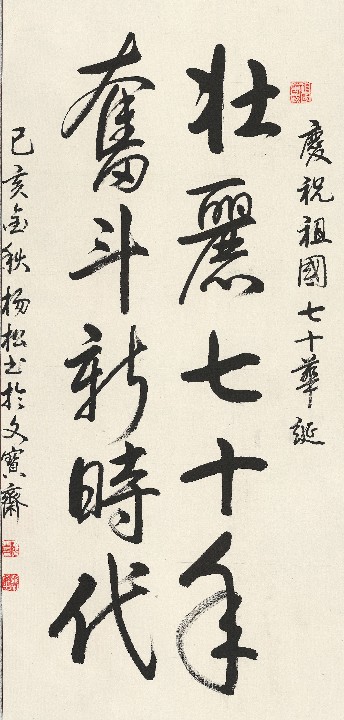 慶祝祖國七十華誕
壯麗七十年
奮斗新時代
己亥金秋楊松书於文寶齋